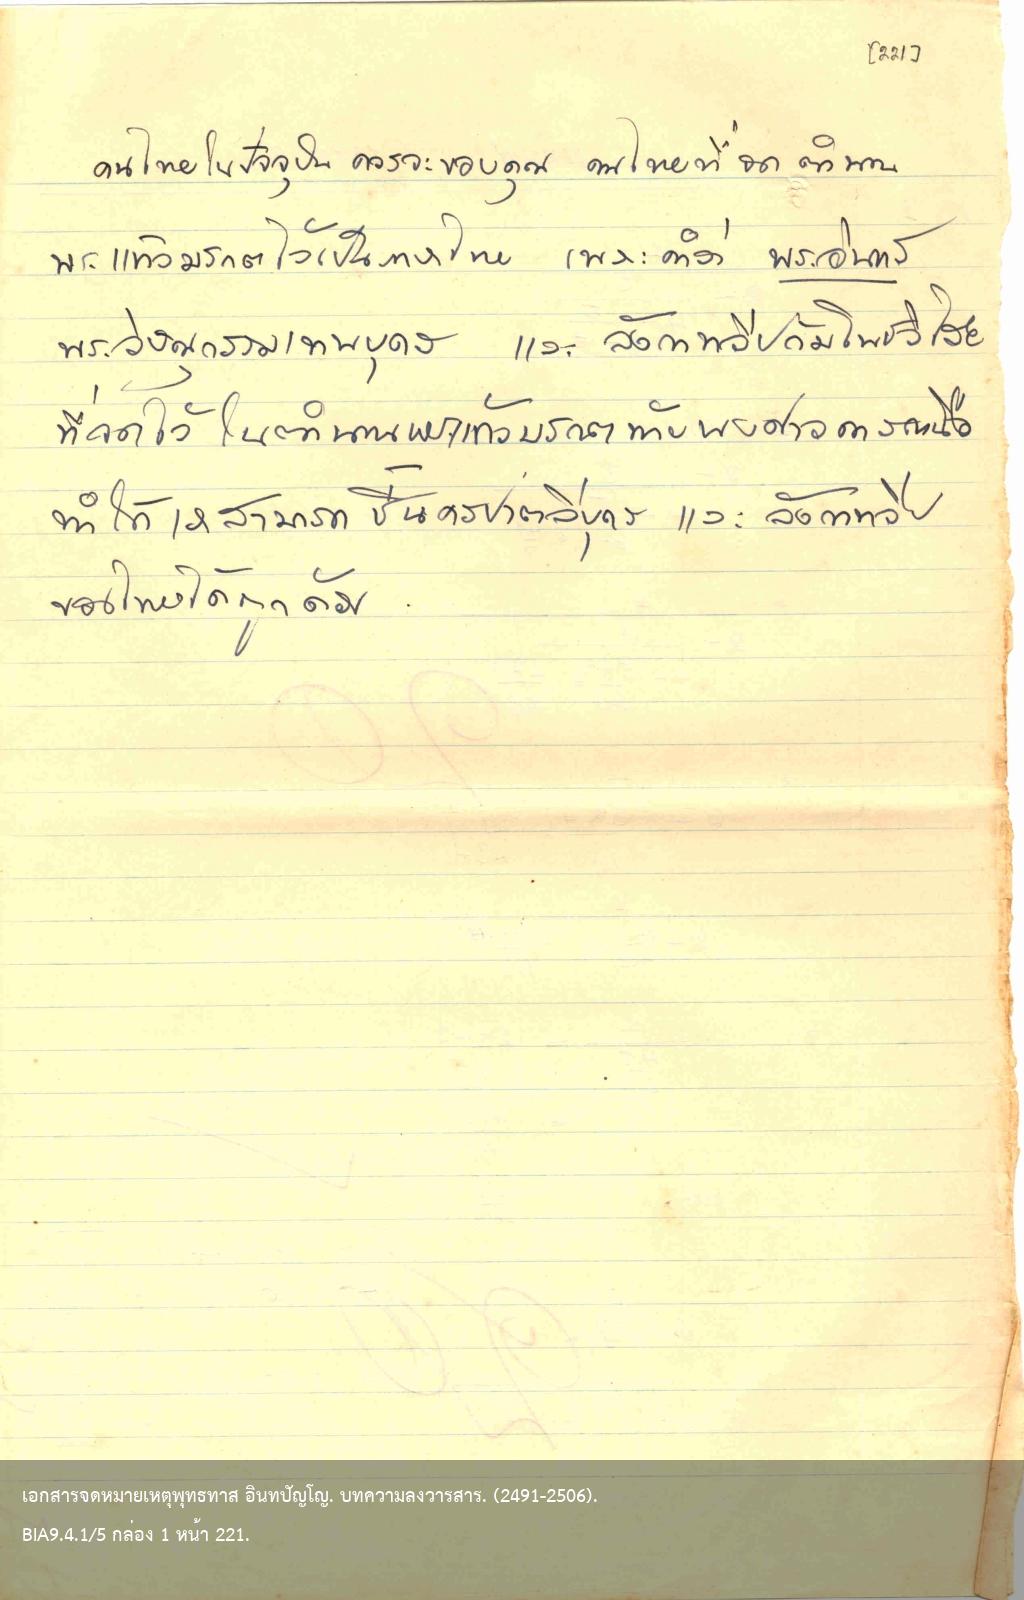 [221]
คนไทยในปัจจุบัน ควรจะขอบคุณ คนไทยที่ จด ตำนาน
พระแก้วมรกตไว้เป็นภาษาไทย เพราะคำว่า พระอินทร์
พระวิษณุกรรมเทพบุตร และ ลังกาทวีป
ที่จดไว้ ในตำนานพระแก้วมรกต กับ พงศาวดารเหนือ
ทำให้ เราสามารถ ชี้นครปาตลีบุตร และ ลังกาทวีป
ของไทยได้ถูกต้อง.
เอกสารจดหมายเหตุพุทธทาส อินทปัญโญ. บทความลงวารสาร. (2491-2506).
BIA9.4.1/5 กล่อง 1 หน้า 221.